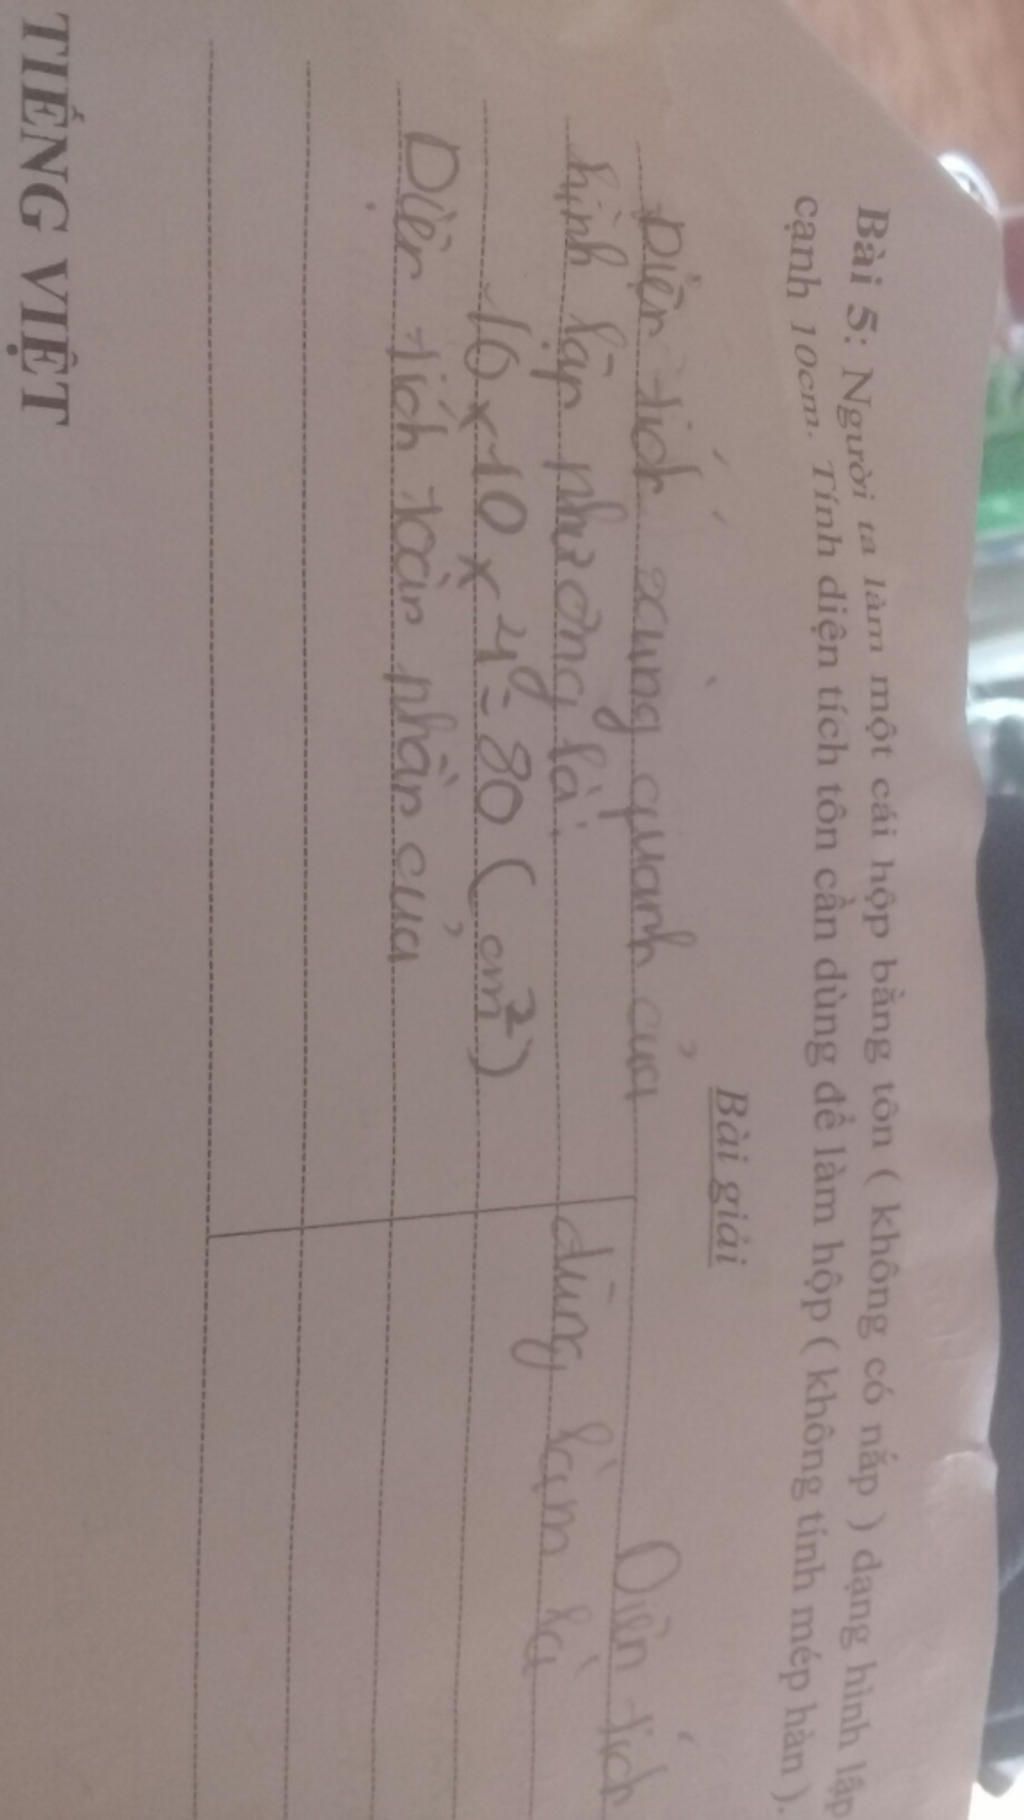 Bài 5: Người ta làm một cái hộp bằng tôn ( không có nắp ) dạng hình lập
cạnh 10cm. Tính diện tích tôn cần dùng để làm hộp ( không tính mép hàn ).
Bài giải
Diện tích xung quanh của
hình lập phương là:
10 x 10 x 4 = 80 ( cm²)
Diện tích toàn phần của
Diện tích
dùng làm là
TIẾNG VIỆT